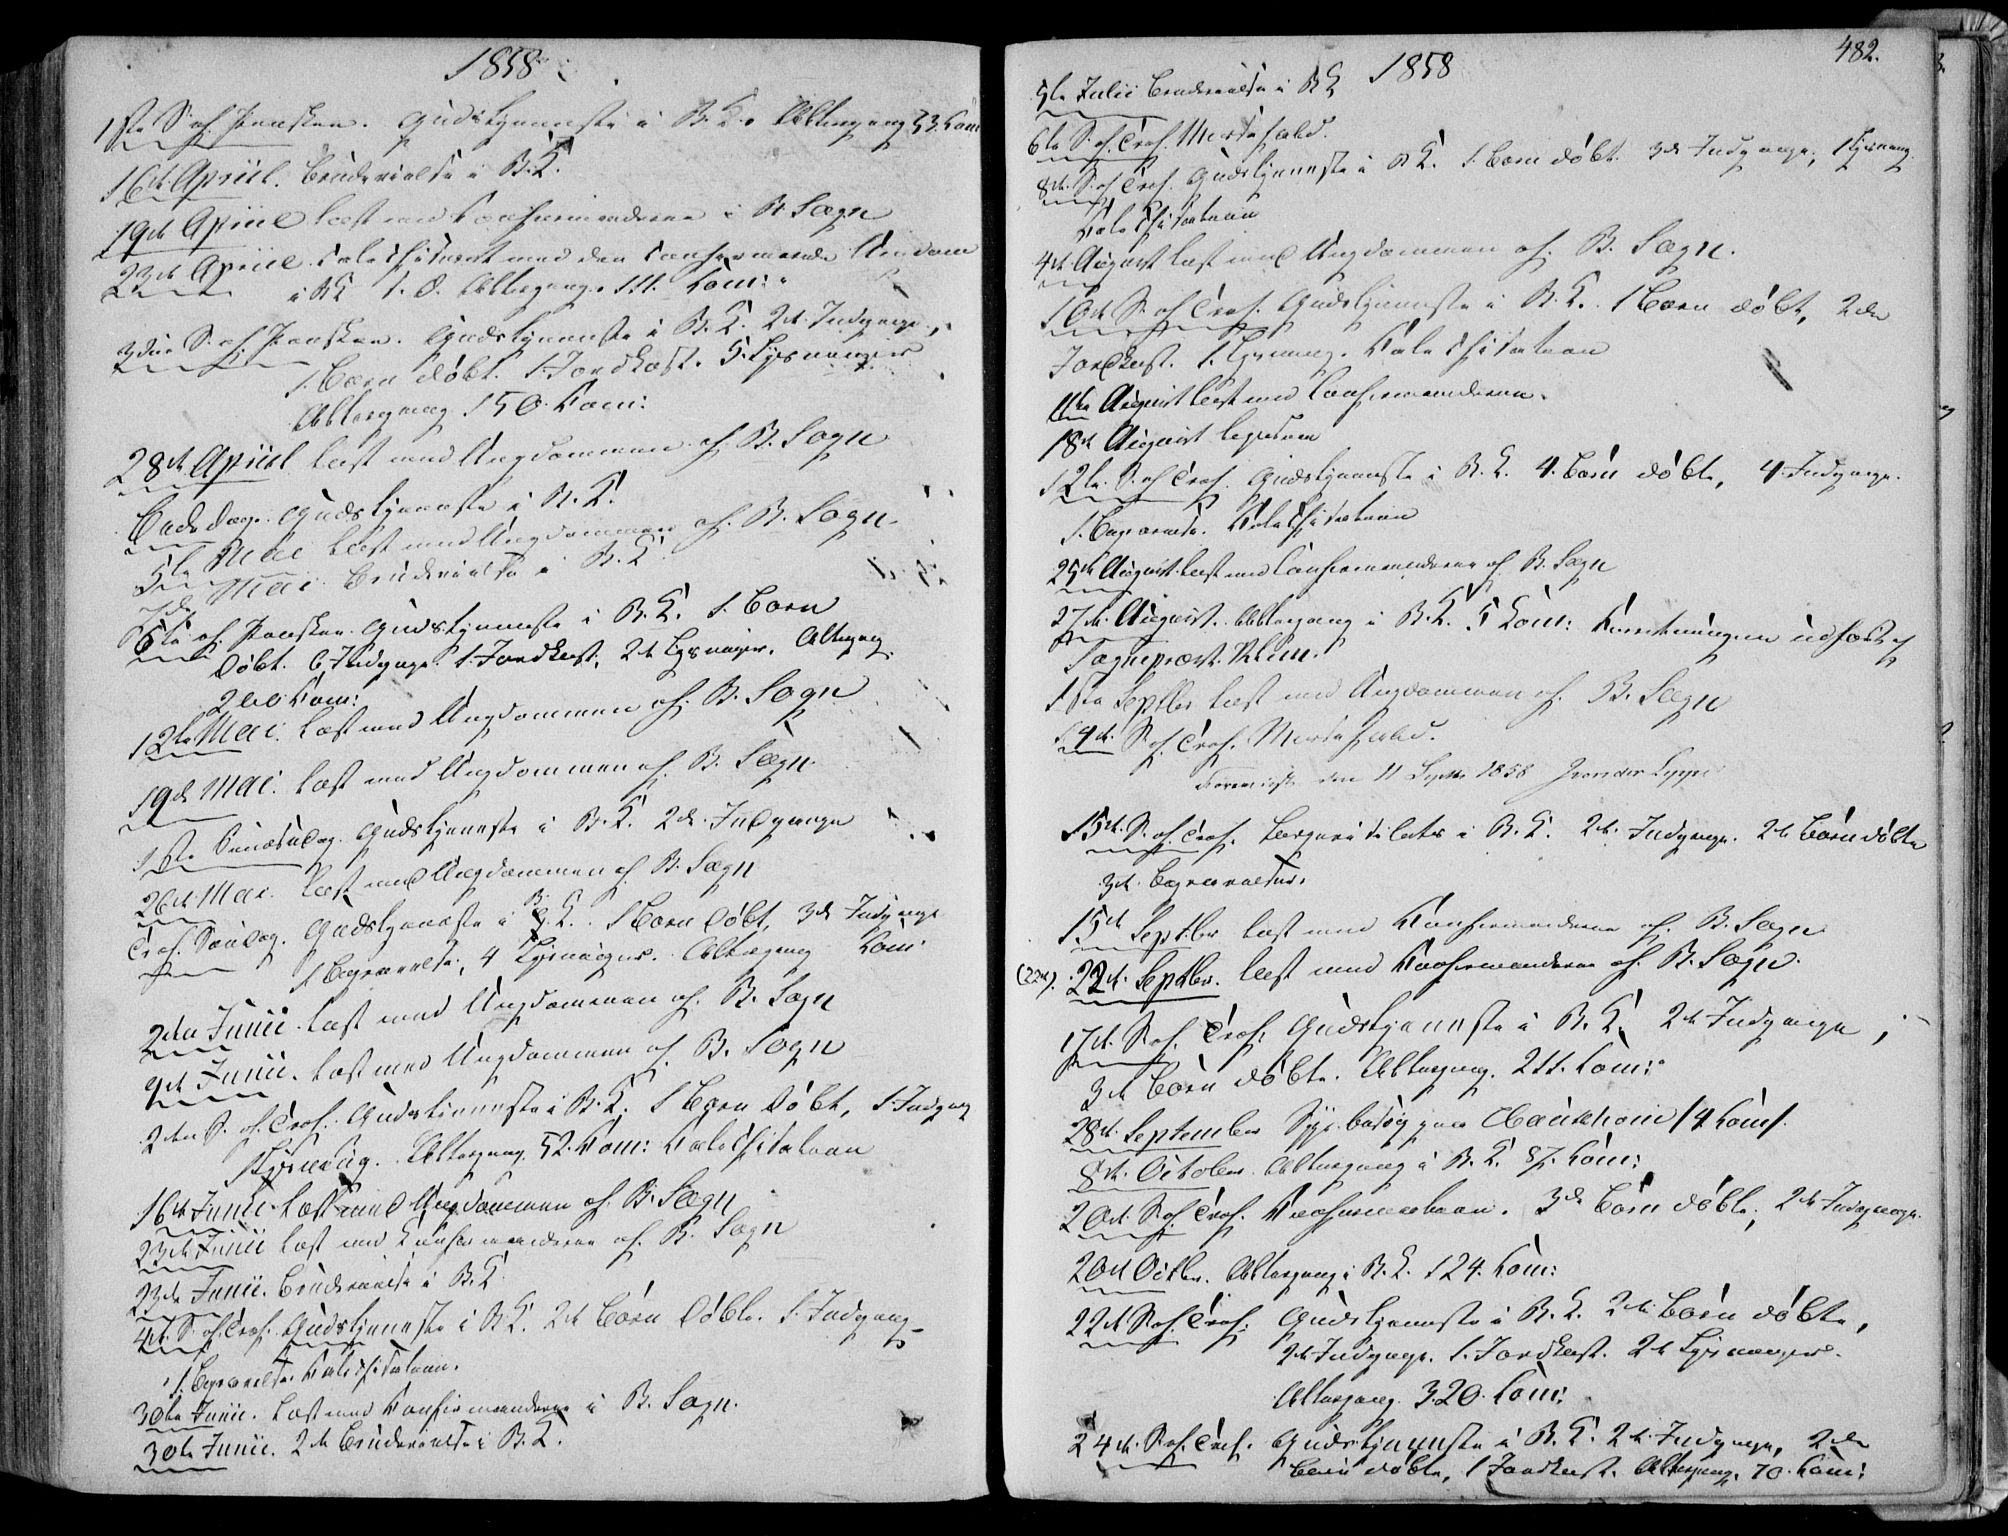 1858
1ste S. ef. Paasken. Gudstjeneste i B. K. Altergang 33. Kom:
16de Apriil. Brudevielse i B. K.
19de Apriil læst med Confirmanderne i B. Sogn
23de Apriil. Catechiseret med den confirmerede Ungdom
i B K 1. D. Altergang. 111. Kom:
3die S. ef. Paasken. Gudstjeneste i B. K. 2de Indgange,
1. Barn døbt. 1 Jordkast. 5 Lysninger
Altergang 150. Kom:
28de Apriil læst med Ungdommen af B. Sogn
Bededag. Gudstjeneste i B. K.
5te Mai læst med Ungdommen af B. Sogn.
7de Mai. Brudevielse i B. K.
5te ef. Paasken. Gudstjeneste i B. K. 1. Barn
døbt. 6 Indgange. 1. Jordkast. 2de Lysninger. Altergang.
200 Kom:
12te Mai. læst med Ungdommen af B. Sogn
19de Mai. læst med Ungdommen af B. Sogn.
1ste Pinsedag. Gudstjeneste i B. K. 2de Indgange
26de Mai. læst med Ungdommen af B. Sogn
Tref. Søndag. Gudstjeneste i B. K. 1 Barn døbt, 3de Indgange
1 Begravelse, 4 Lysninger. Altergang Kom:
2den Junii. læst med Ungdommen af B. Sogn
9de Junii. læst med Ungdommen af B. Sogn
2den S. ef. Tref. Gudstjeneste i B. K. 1 Barn døbt, 1. Indgang
1 Lysning. Altergang 52. Kom: Catechisation
16de Junii læst med Ungdommen af B. Sogn
23de Junii læst med Confirmanderne af B. Sogn
23de Junii. Brudevielse i B. K
4de S. ef. Tref. Gudstjeneste i B. K. 2de Børn døbte. 1. Indgang.
1. Begravelse. Catechisation.
30te Junii. læst med Confirmanderne i B. Sogn.
30te Junii. 2de Brudevielser i B. K.
482.
1858
5te Julii Brudevielse i B K
6te S. ef. Tref. Messefald.
8de S. ef. Tref. Gudstjeneste i B K. 1. Barn døbt. 3de Indgange, 1 Lysning.
Catechisation
4de August læst med Ungdommen af B. Sogn.
10de S. ef. Tref. Gudstjeneste i B. K. 1 Barn døbt, 2de
Jordkast. 1. Lysning. Catechisation
11te August læst med Confirmanderne.
18de August ligesom
12te S. ef. Tref. Gudstjeneste i B. K. 4. Børn døbte, 4. Indgange.
1. Begravelse. Catechisation
25de August læst med Confirmanderne af B. Sogn
27de August. Altergang i B. K. 5 Kom: Forretningen udført af
Sognepræst
1ste Septbr læst med Ungdommen af B. Sogn
14de S. ef. Tref. Messefald.
den 11 Septbr 1858
15de S. ef. Tref. i B. K. 2de Indgange. 2de Børn døbte
3de Begravelser.
15de Septbr læst med Confirmanderne af B. Sogn
(22de). 22de Septbr. læst med Confirmanderne af B. Sogn.
17de S. ef. Tref. Gudstjeneste i B. K. 2de Indgange,
3de Børn døbte. Altergang. 211. Kom:
28de September Sygebesøg paa /4 Kom/.
8de October Altergang i B. K. 87. Kom:
20de S. ef. Tref. Confirmation. 3de Børn døbte, 2de Indgange.
20de Octbr. Altergang i B. K. 124. Kom:
22de S. ef. Tref. Gudstjeneste i B. K. 2de Børn døbte,
2de Indgange. 1. Jordkast. 2de Lysninger.
Altergang. 320. Kom:
24de S. ef. Tref. Gudstjeneste i B. K. 2de Indgange, 2de
Børn døbte, 1 Jordkast. Altergang. 70. Kom: